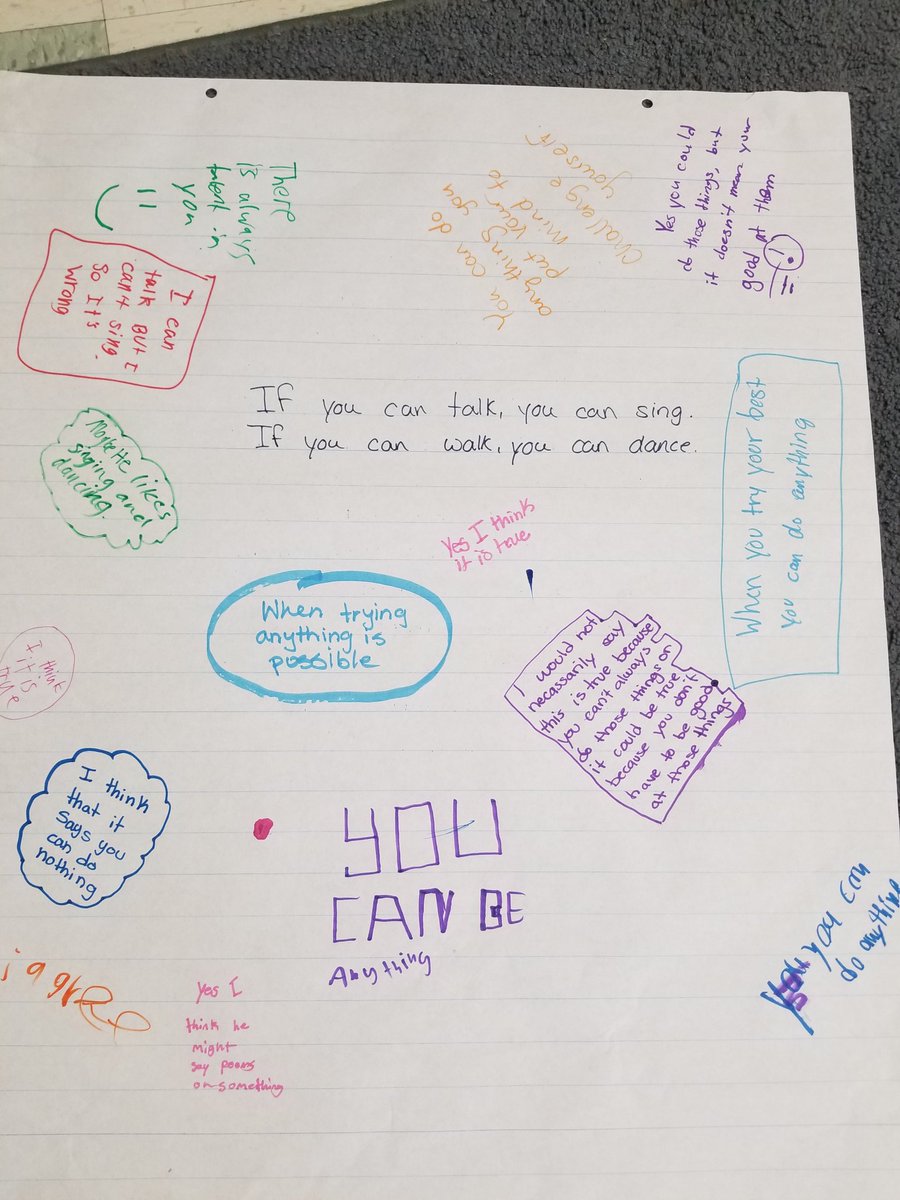 There
is always
talent in
you
You can do
anything you
put your
mind to
Challenge
yourself.
Yes you could
do those things, but
it doesn't mean your
good at them
I can
talk BUt I
can't sing.
So It's
wrong
If you can talk, you can sing.
If you can walk, you can dance.
When you try your best
you can do anything
Maybe He likes
singing and
dancing.
Yes I think
it is true
When trying
anything is
possible
I would not
necassarily say
this is true because
you can't always
do those things or
it could be true
because you don't
have to be good
at those things
I think
it is
true
I think
that it
says you
can do
nothing
YOU
CAN BE
Anything
you can
do anything
Yes I
think he
might
say poems
or something